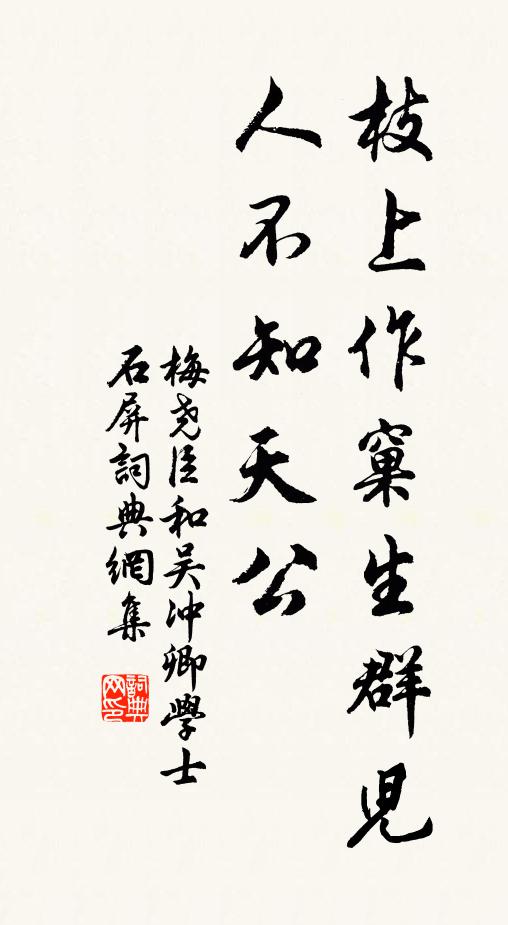 枝上作窠生群兒
人不知天公
梅堯臣和吴冲卿學士
石屏詞典網集
詞典
网印